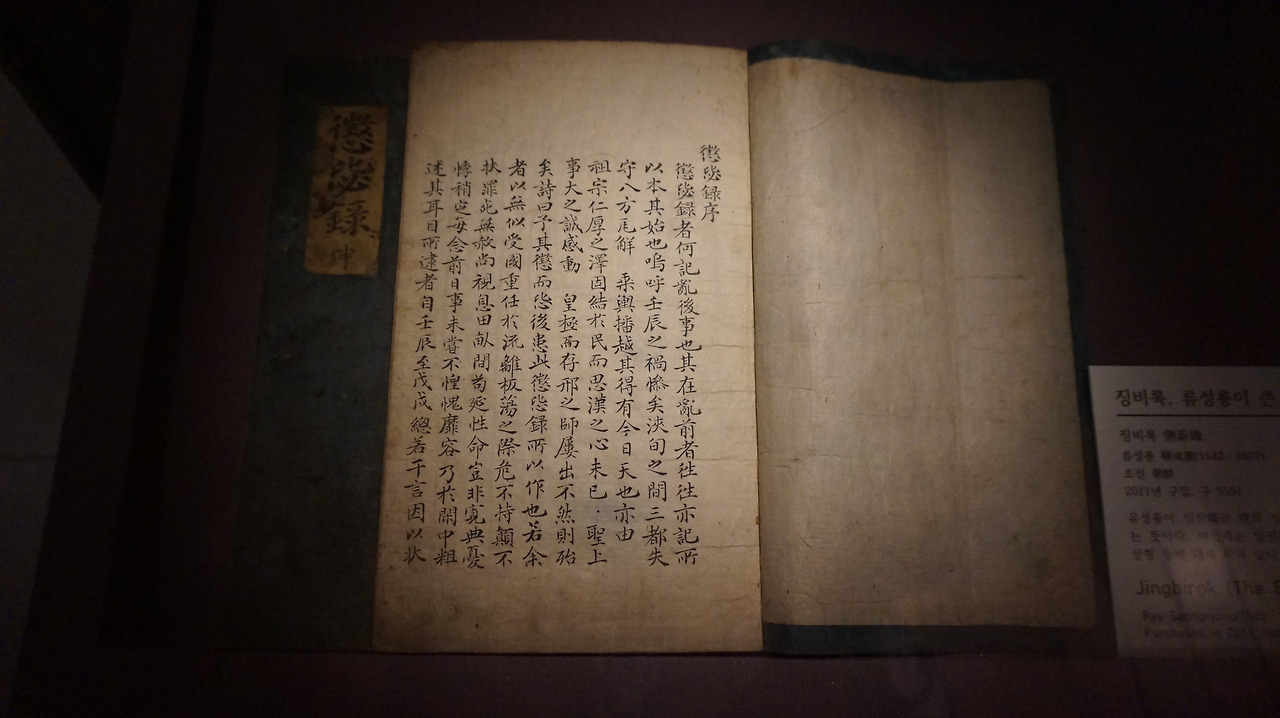 懲毖錄
坤
懲毖錄序
懲毖錄者何記亂後事也其在亂前者徃徃亦記所
以本其始也嗚呼壬辰之禍慘矣浹旬之間三都失
守八方瓦解 乘輿播越其得有今日天也亦由
祖宗仁厚之澤固結於民而思漢之心未已 聖上
事大之誠感動 皇極而存邢之師屢出不然則殆
矣詩曰予其懲而毖後患此懲毖錄所以作也若余
者以無似受國重任於流離板蕩之際危不持顚不
扶罪死無赦尚視息田畝間苟延性命豈非寬典憂
悸稍定每念前日事未嘗不惶愧靡容乃於閑中粗
述其耳目所逮者自壬辰至戊戌總若干言因以狀
징비록, 류성룡이 쓴
징비록 懲毖錄
류성룡 柳成龍(1542-1607)
조선 朝鮮
2011년 구입, 구
Jingbirok (The
Ryu Seongnyong(1542
Purchased in 2011,